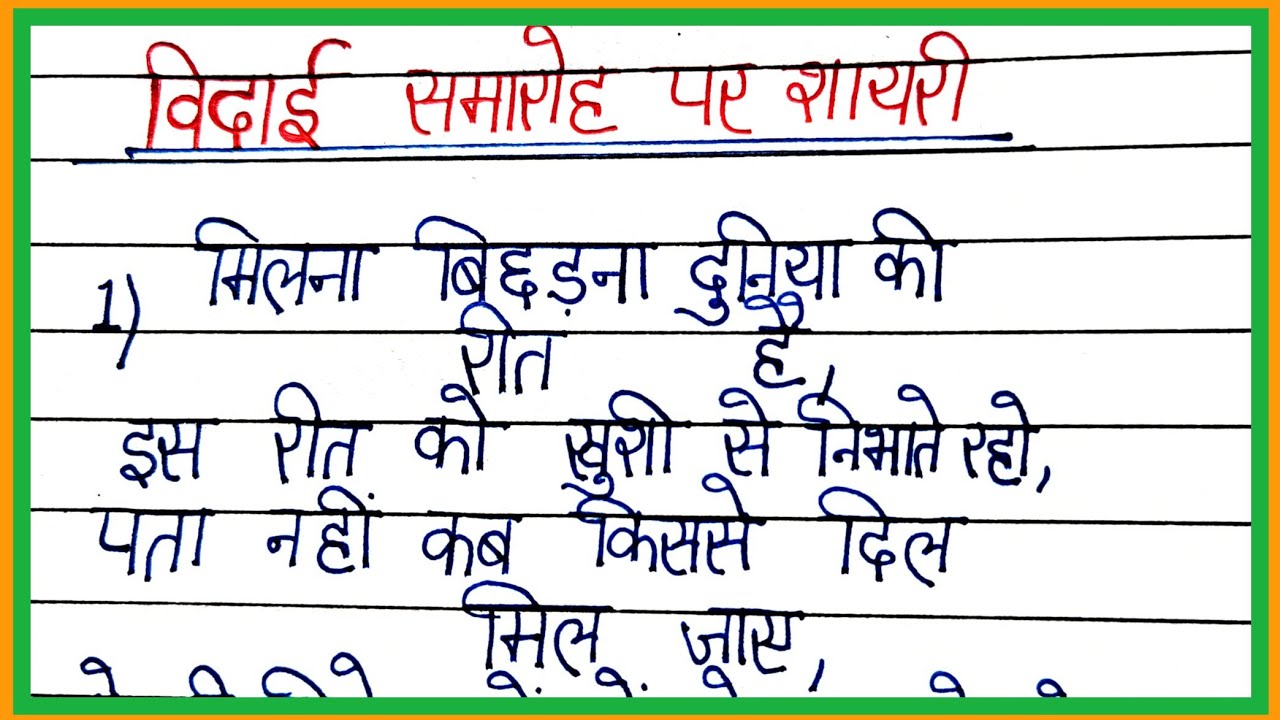 विदाई समारोह पर शायरी
1) मिलना बिछड़ना दुनिया की
रीत है,
इस रीत को खुशी से निभाते रहो,
पता नहीं कब किससे दिल
मिल जाए,